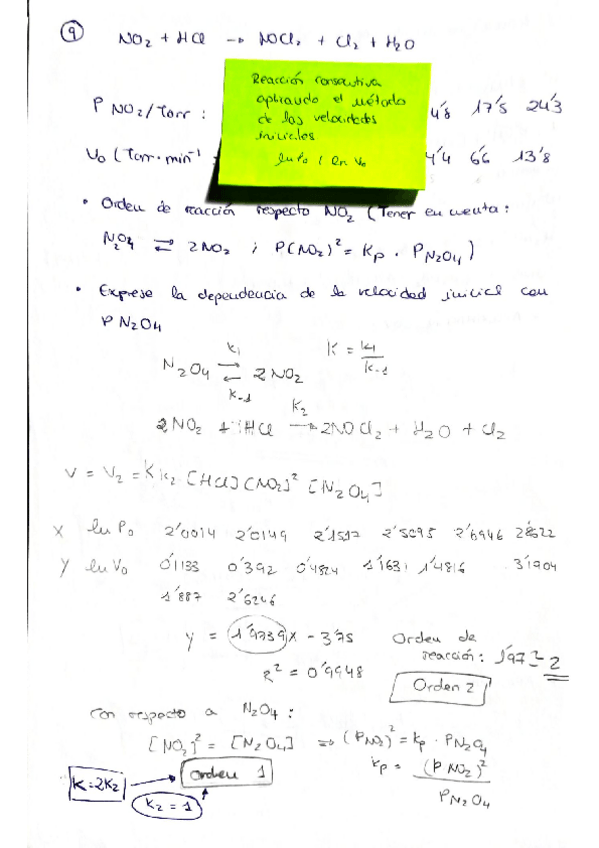 9
NO₂ + HCl → NOCl₂ + Cl₂ + H₂O
Reacción consecutiva
aplicando el método
de las velocidades
iniciales
ln P₀ / ln V₀
P NO₂/Torr : 4'8 17'5 24'3
V₀ (Torr·min⁻¹ = 4'4 6'6 13'8
• Orden de reacción respecto NO₂ (Tener en cuenta:
N₂O₄ ⇄ 2NO₂ ; P(NO₂)² = Kp · P N₂O₄)
• Exprese la dependencia de la velocidad inicial con
P N₂O₄
N₂O₄ ⇄ 2NO₂
k₁
k₋₁
K = k₁/k₋₁
2NO₂ + HCl → 2NOCl₂ + H₂O + Cl₂
K₂
V = V₂ = K k₂ · [HCl] [NO₂]² [N₂O₄]
X ln P₀ 2'0014 2'0149 2'1517 2'5095 2'6946 2'8622
Y ln V₀ 0'1133 0'392 0'4824 1'1631 1'4816 3'1904
1'887 2'6246
y = 1'9739x - 3'75
R² = 0'9948
Orden de
reacción: 1'97 ≃ 2
Orden 2
con respecto a N₂O₄ :
[NO₂]² = [N₂O₄] ⇒ (P NO₂)² = Kp · P N₂O₄
Kp = (P NO₂)² / P N₂O₄
K=2K₂
Orden 1
K₂ = 1